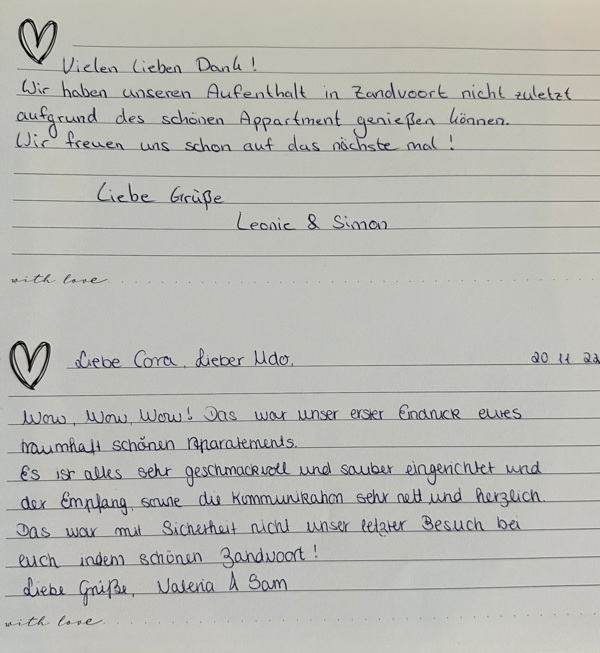 Vielen lieben Dank!
Wir haben unseren Aufenthalt in Zandvoort nicht zuletzt
aufgrund des schönen Appartment genießen können.
Wir freuen uns schon auf das nächste mal!
Liebe Grüße
Leonie & Simon
with love
Liebe Cora, Lieber Udo, 20 11 22
Wow, Wow, Wow! Das war unser erster Eindruck eures
traumhaft schönen Aparatements.
Es ist alles sehr geschmackvoll und sauber eingerichtet und
der Empfang, sowie die Kommunikation sehr nett und herzlich.
Das war mit Sicherheit nicht unser letzter Besuch bei
euch indem schönen Zandvoort!
Liebe Grüße, Valeria & Sam
with love